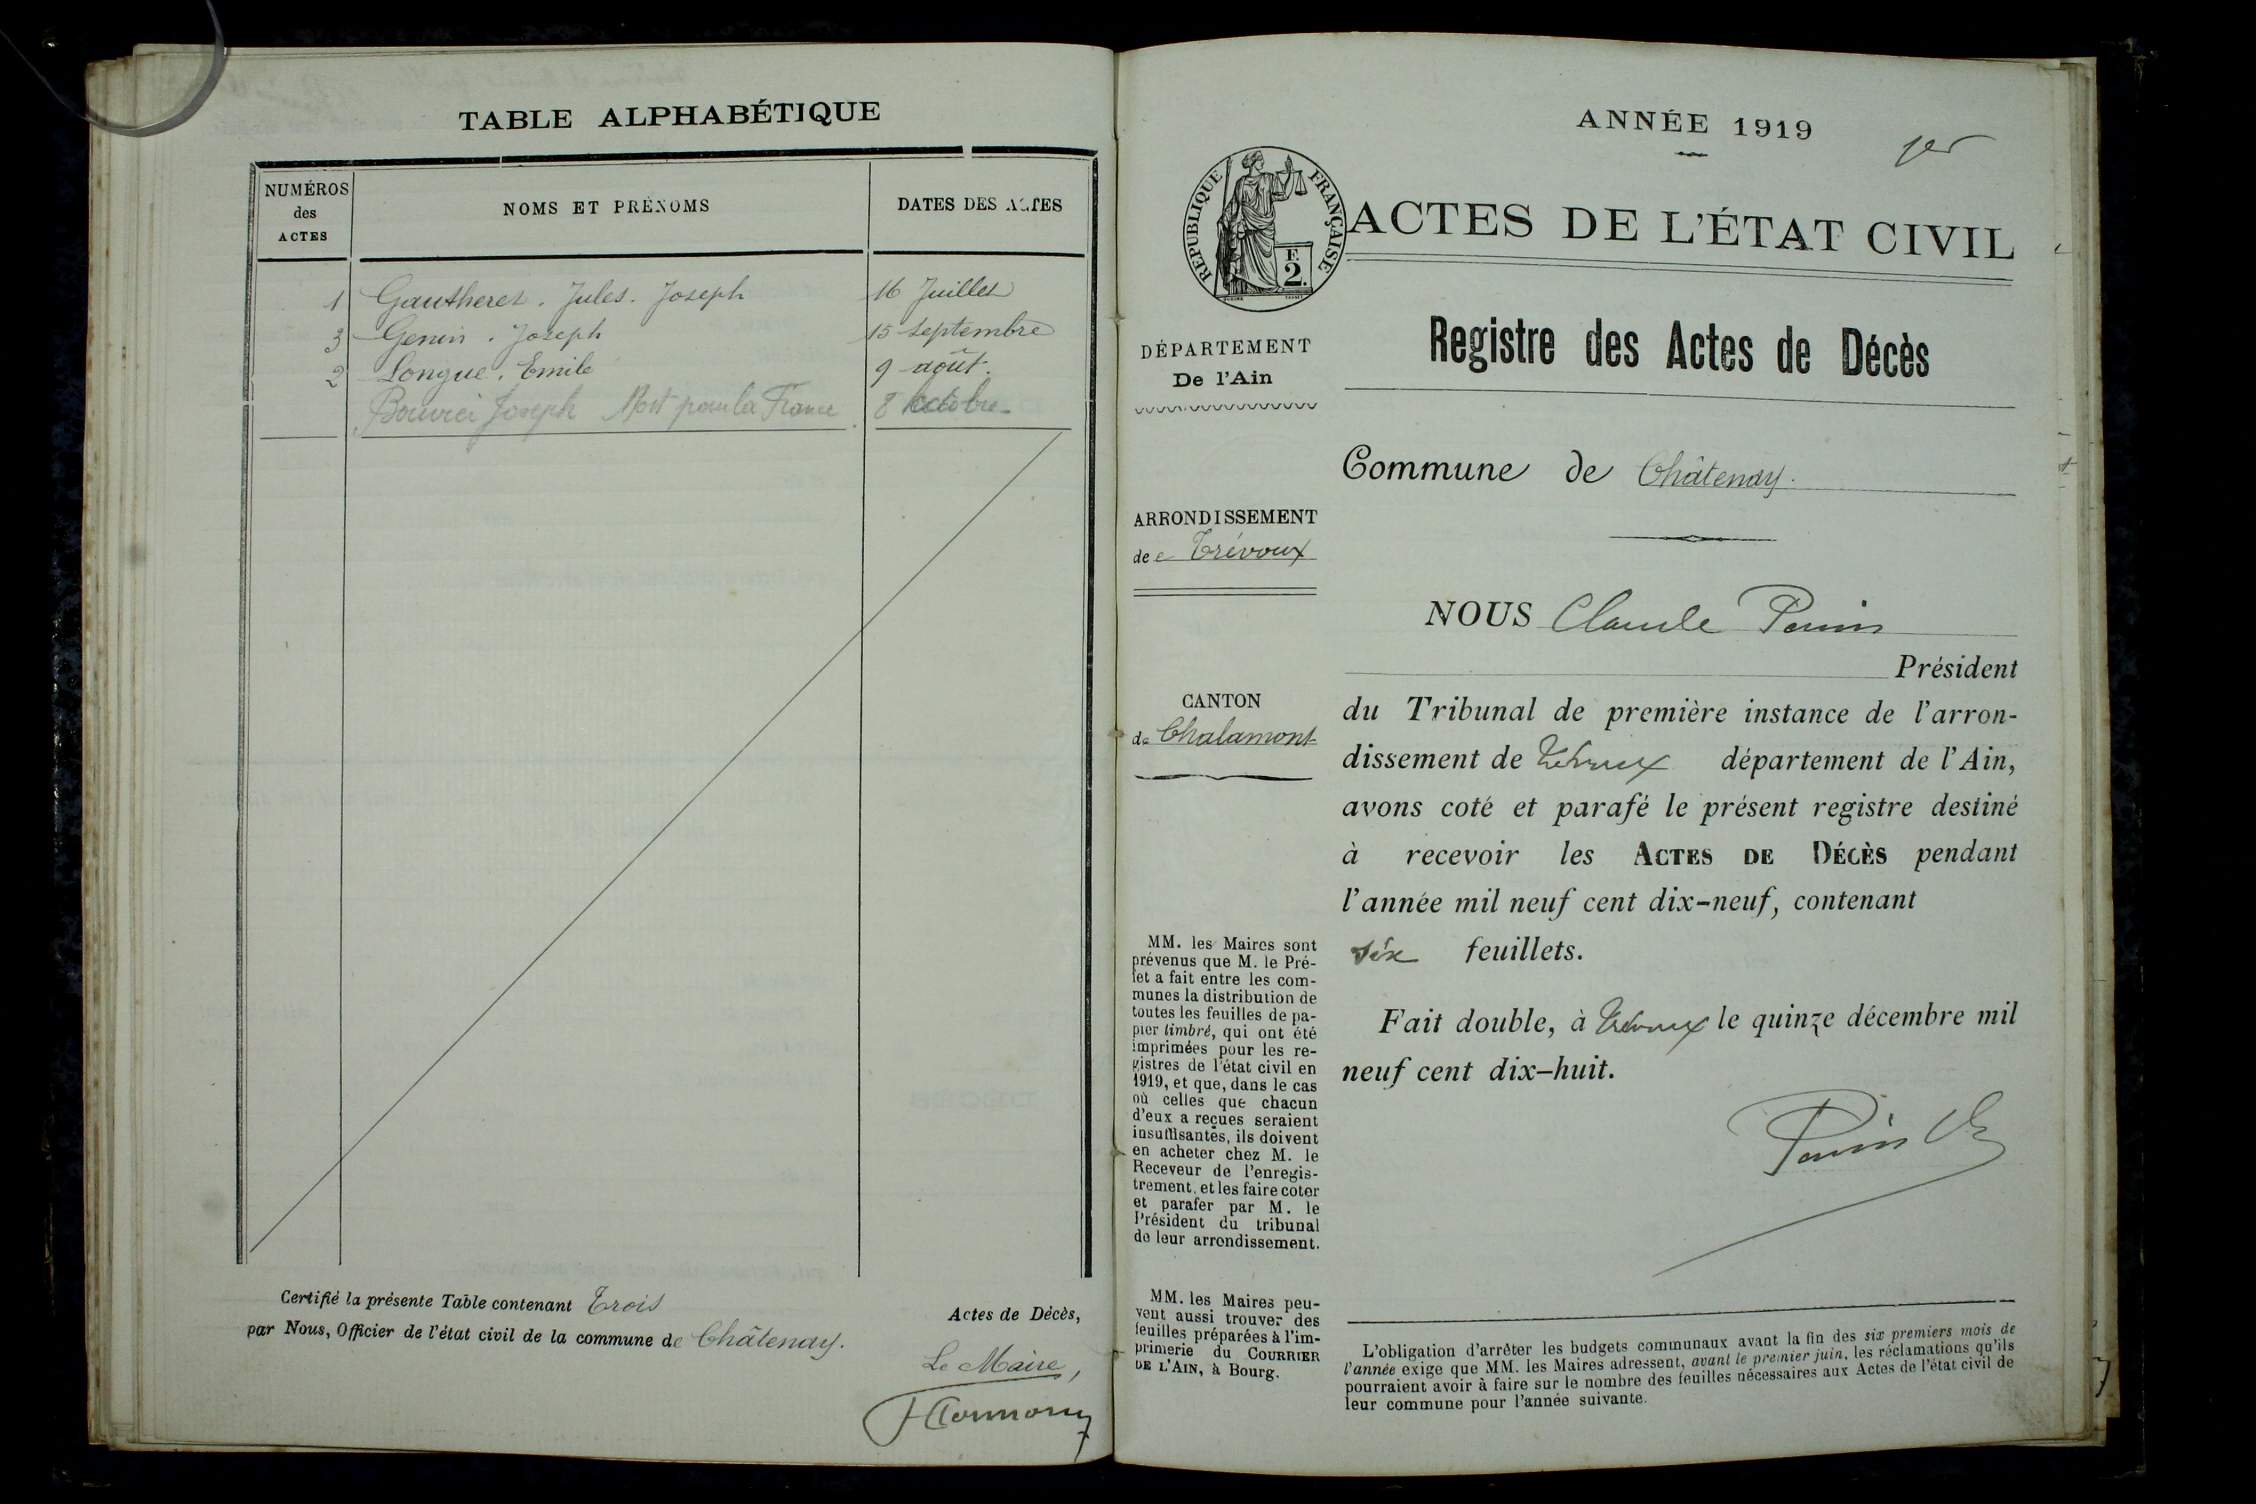 TABLE ALPHABÉTIQUE
NUMÉROS
des
ACTES
NOMS ET PRÉNOMS
DATES DES ACTES
1 Gautheret. Jules. Joseph 16 Juillet
3 Genin. Joseph 15 septembre
2 Longue. Emile 9 août.
Joseph Mort pour la France 8 octobre
Certifié la présente Table contenant Trois
Actes de Décès,
par Nous, Officier de l'état civil de la commune de Châtenay.
Le Maire,
ANNÉE 1919
RÉPUBLIQUE FRANÇAISE
F.
2.
ACTES DE L'ÉTAT CIVIL
Registre des Actes de Décès
DÉPARTEMENT
De l'Ain
Commune de Châtenay.
ARRONDISSEMENT
de Trévoux
CANTON
de Chalamont
NOUS Claude
Président
du Tribunal de première instance de l'arron-
dissement de Trévoux département de l'Ain,
avons coté et parafé le présent registre destiné
à recevoir les ACTES DE DÉCÈS pendant
l'année mil neuf cent dix-neuf, contenant
six feuillets.
Fait double, à Trévoux le quinze décembre mil
neuf cent dix-huit.
MM. les Maires sont
prévenus que M. le Pré-
fet a fait entre les com-
munes la distribution de
toutes les feuilles de pa-
pier timbré, qui ont été
imprimées pour les re-
gistres de l'état civil en
1919, et que, dans le cas
où celles que chacun
d'eux a reçues seraient
insuffisantes, ils doivent
en acheter chez M. le
Receveur de l'enregis-
trement, et les faire coter
et parafer par M. le
Président du tribunal
de leur arrondissement.
MM. les Maires peu-
vent aussi trouver des
feuilles préparées à l'im-
primerie du COURRIER
DE L'AIN, à Bourg.
L'obligation d'arrêter les budgets communaux avant la fin des six premiers mois de
l'année exige que MM. les Maires adressent, avant le premier juin, les réclamations qu'ils
pourraient avoir à faire sur le nombre des feuilles nécessaires aux Actes de l'état civil de
leur commune pour l'année suivante.